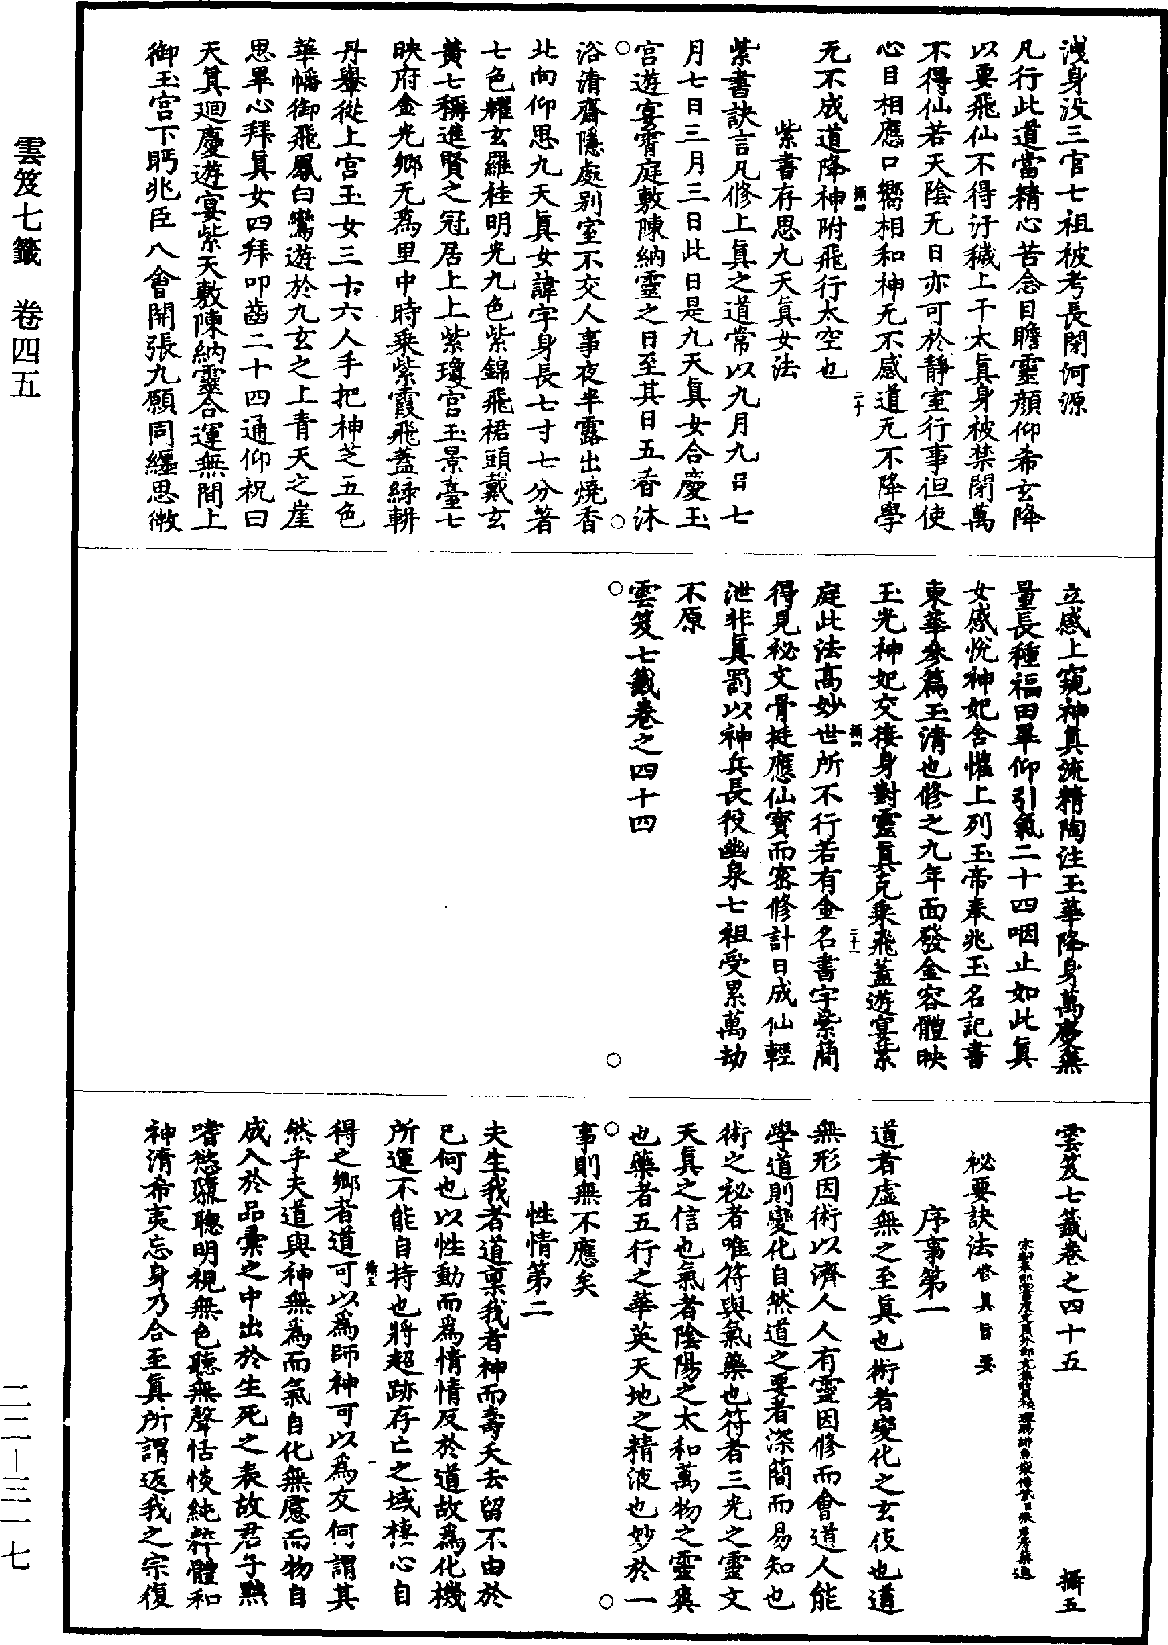 洩身没三官七祖被考長閉河源
凡行此道當精心苦念目瞻靈顏仰希玄降
以要飛仙不得汙穢上干太眞身被禁閉萬
不得仙若天陰无日亦可於靜室行事但使
心目相應口嚮相和神无不感道无不降學
无不成道降神附飛行太空也
紫書存思九天眞女法
紫書訣言凡修上眞之道常以九月九日七
月七日三月三日此日是九天眞女合慶玉
宮遊宴霄庭敷陳納靈之日至其日五香沐
浴清齋隱處别室不交人事夜半露出燒香
北向仰思九天眞女諱字身長七寸七分著
七色耀玄羅桂明光九色紫錦飛裙頭戴玄
黄七稱進賢之冠居上上紫瓊宮玉景臺七
映府金光鄉无爲里中時乘紫霞飛蓋緑輧
丹轝從上宮玉女三十六人手把神芝五色
華幡御飛鳳白鸞遊於九玄之上青天之崖
思畢心拜眞女四拜叩齒二十四通仰祝曰
天眞廻慶遊宴紫天敷陳納靈合運無間上
御玉宮下眄兆臣八會開張九願同纏思微
立感上窺神眞流精陶注玉華降身萬慶無
量長種福田畢仰引氣二十四咽止如此眞
女感悅神妃含懽上列玉帝奉兆玉名記書
東華參篇玉清也修之九年面發金容體映
玉光神妃交接身對靈眞克乘飛蓋遊宴紫
庭此法高妙世所不行若有金名書字紫簡
得見祕文骨挺應仙寳而密修計日成仙輕
泄非眞罰以神兵長役幽泉七祖受累萬劫
不原
雲笈七籤卷之四十四
雲笈七籤卷之四十五 攝五
祕要訣法修眞旨要
序事第一
道者虛無之至眞也術者變化之玄伎也道
無形因術以濟人人有靈因修而會道人能
學道則變化自然道之要者深簡而易知也
術之祕者唯符與氣藥也符者三光之靈文
天眞之信也氣者陰陽之太和萬物之靈爽
也藥者五行之華英天地之精液也妙於一
事則無不應矣
性情第二
夫生我者道禀我者神而壽夭去留不由於
己何也以性動而爲情情反於道故爲化機
所運不能自持也將超跡存亡之域棲心自
得之鄉者道可以爲師神可以爲友何謂其
然乎夫道與神無爲而氣自化無慮而物自
成入於品彙之中出於生死之表故君子黜
嗜慾隳聰明視無色聽無聲恬惔純粹體和
神清希夷忘身乃合至眞所謂返我之宗復
雲笈七籤 卷四五
二二－三一七